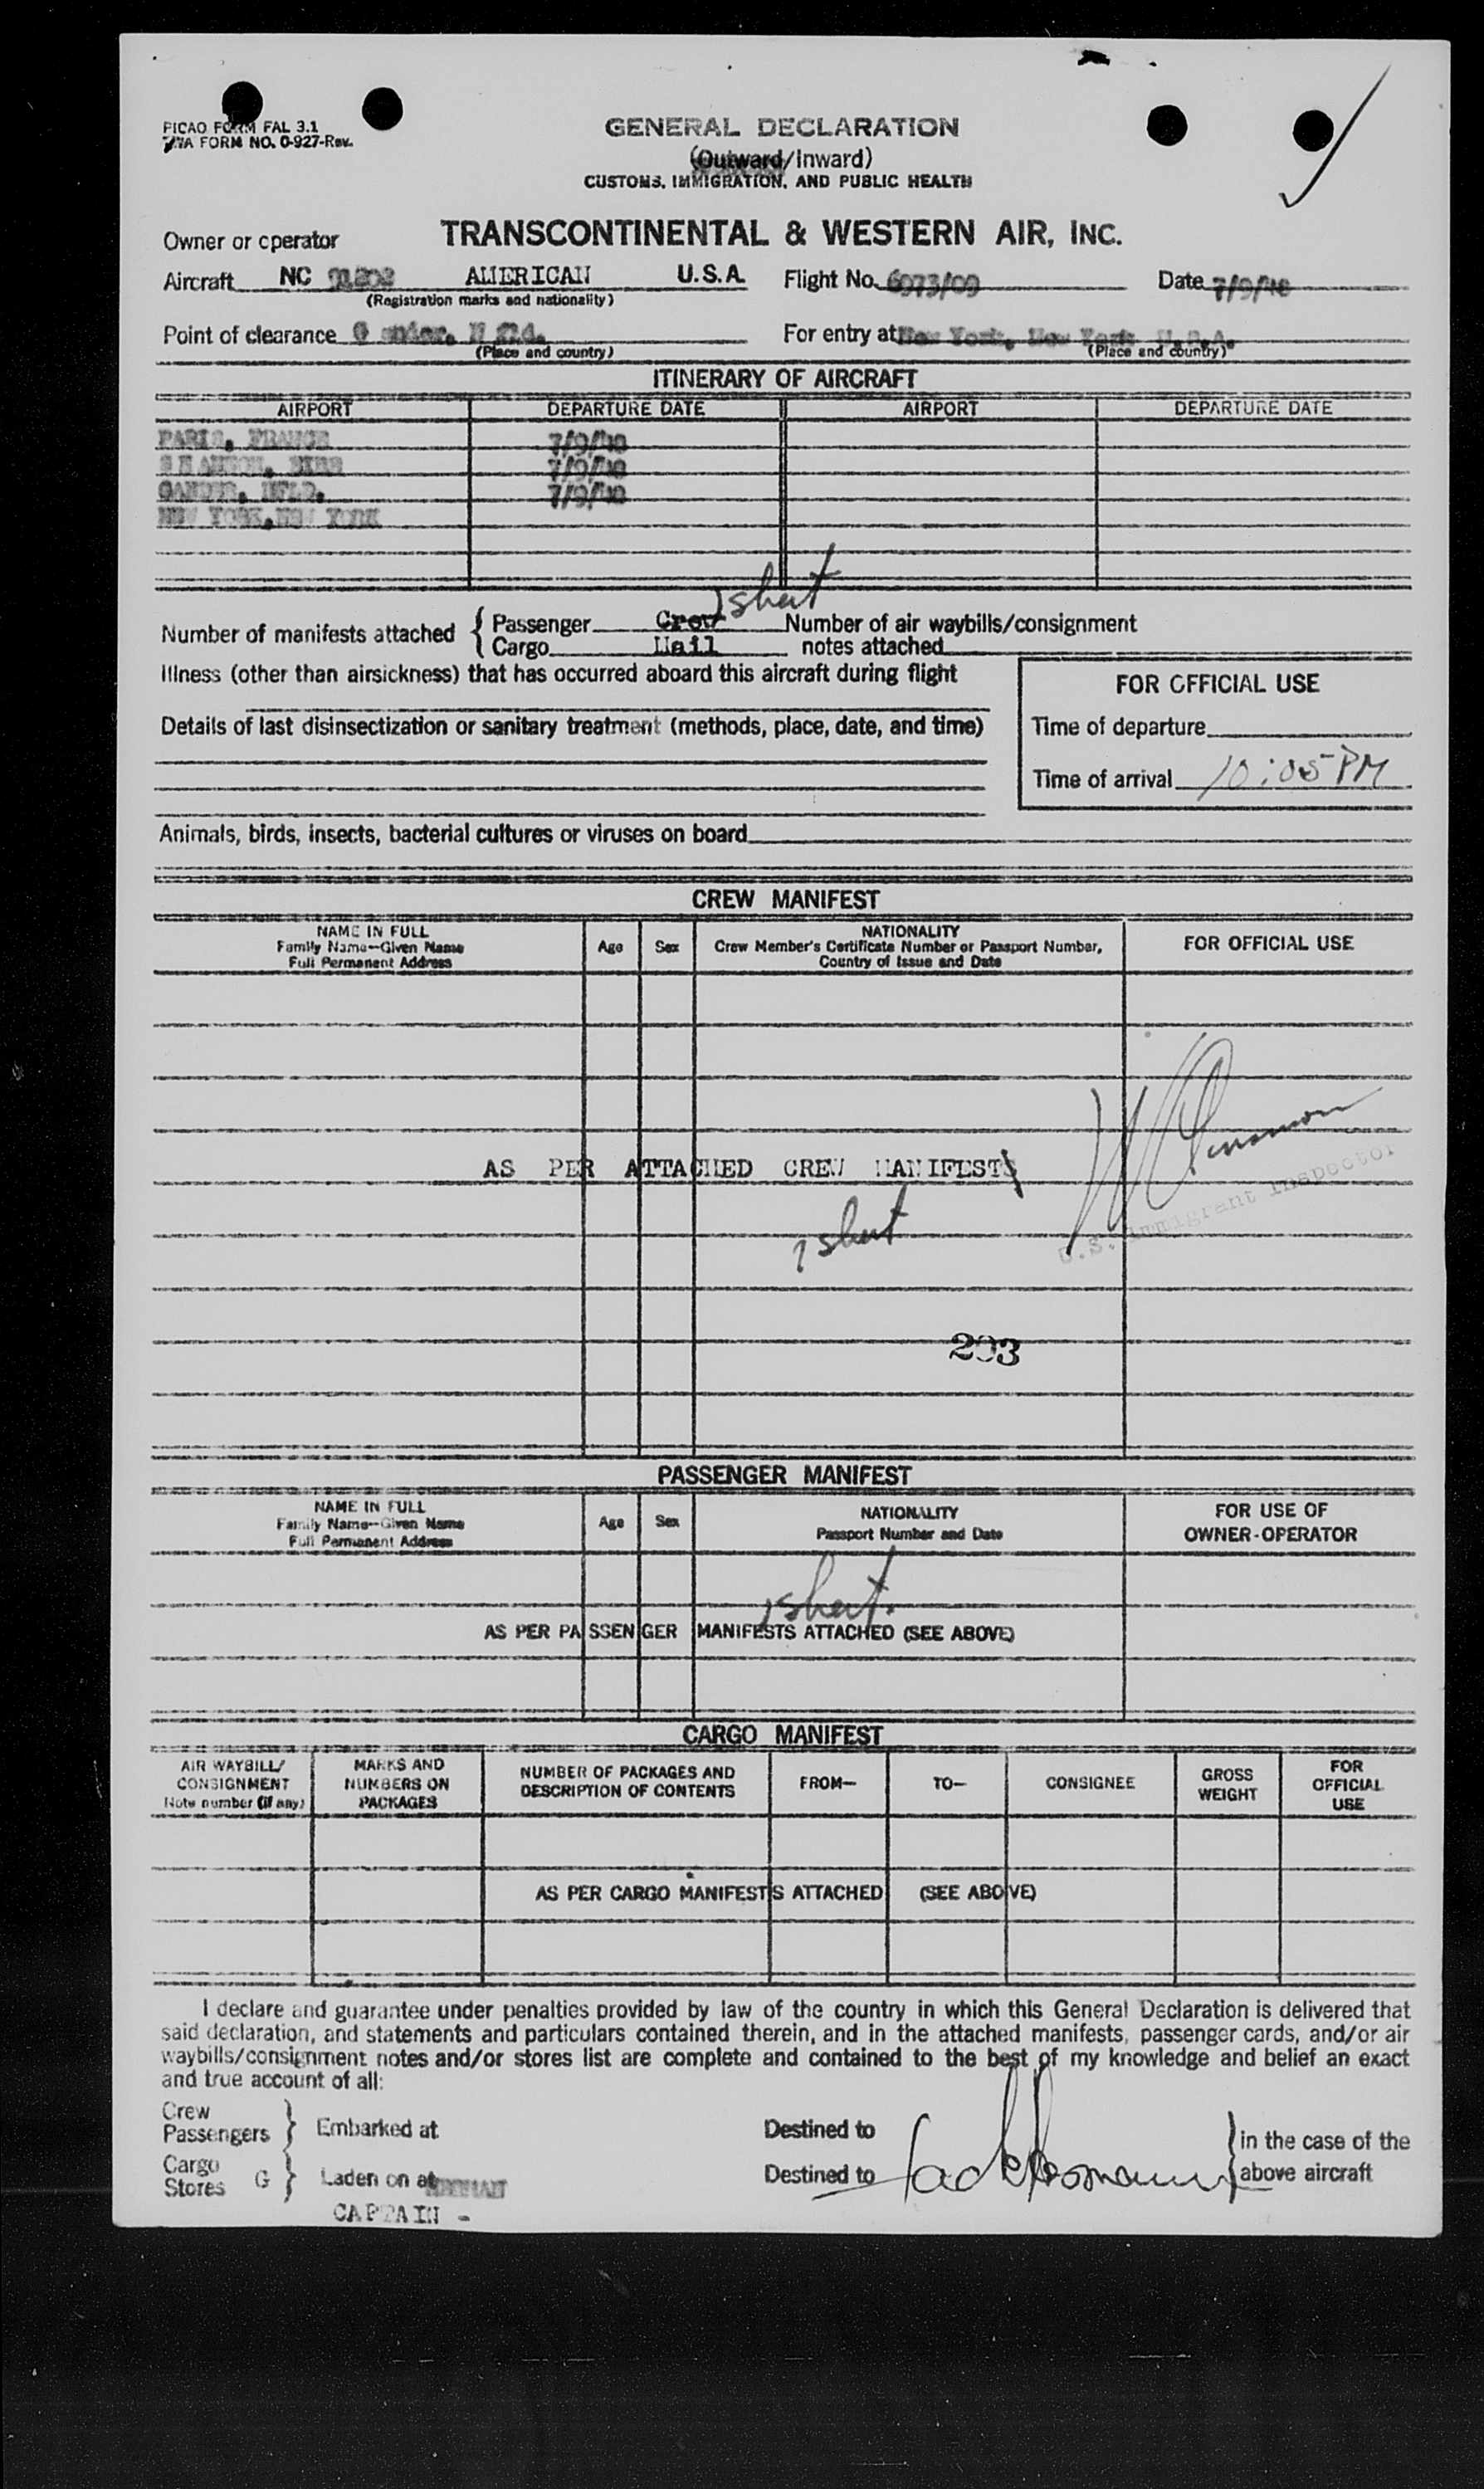 PICAO FORM FAL 3.1
TWA FORM NO. 0-927-Rev.
GENERAL DECLARATION
(Outward/Inward)
CUSTOMS, IMMIGRATION, AND PUBLIC HEALTH
Owner or operator TRANSCONTINENTAL & WESTERN AIR, INC.
Aircraft NC AMERICAN U.S.A. Flight No. 6973/09 Date 7/9/48
(Registration marks and nationality)
Point of clearance Gander, Nfld. For entry at New York, New York U.S.A.
(Place and country) (Place and country)
ITINERARY OF AIRCRAFT
AIRPORT DEPARTURE DATE AIRPORT DEPARTURE DATE
PARIS, FRANCE 7/9/48
SHANNON, EIRE 7/9/48
GANDER, NFLD. 7/9/48
NEW YORK, NEW YORK
1 sheet
Number of manifests attached { Passenger Crew Number of air waybills/consignment
Cargo Mail notes attached
Illness (other than airsickness) that has occurred aboard this aircraft during flight
FOR OFFICIAL USE
Details of last disinsectization or sanitary treatment (methods, place, date, and time)
Time of departure
Time of arrival 10:05 PM
Animals, birds, insects, bacterial cultures or viruses on board
CREW MANIFEST
NAME IN FULL
Family Name—Given Name
Full Permanent Address
Age Sex
NATIONALITY
Crew Member's Certificate Number or Passport Number,
Country of Issue and Date
FOR OFFICIAL USE
AS PER ATTACHED CREW MANIFESTS
U.S. Immigrant Inspector
1 sheet
203
PASSENGER MANIFEST
NAME IN FULL
Family Name—Given Name
Full Permanent Address
Age Sex
NATIONALITY
Passport Number and Date
FOR USE OF
OWNER-OPERATOR
1 sheet.
AS PER PASSENGER MANIFESTS ATTACHED (SEE ABOVE)
CARGO MANIFEST
AIR WAYBILL/
CONSIGNMENT
Note number (if any)
MARKS AND
NUMBERS ON
PACKAGES
NUMBER OF PACKAGES AND
DESCRIPTION OF CONTENTS
FROM—
TO—
CONSIGNEE
GROSS
WEIGHT
FOR
OFFICIAL
USE
AS PER CARGO MANIFESTS ATTACHED (SEE ABOVE)
I declare and guarantee under penalties provided by law of the country in which this General Declaration is delivered that
said declaration, and statements and particulars contained therein, and in the attached manifests, passenger cards, and/or air
waybills/consignment notes and/or stores list are complete and contained to the best of my knowledge and belief an exact
and true account of all:
Crew
Passengers } Embarked at Destined to } in the case of the
Cargo
Stores G } Laden on at Destined to above aircraft
CAPTAIN -